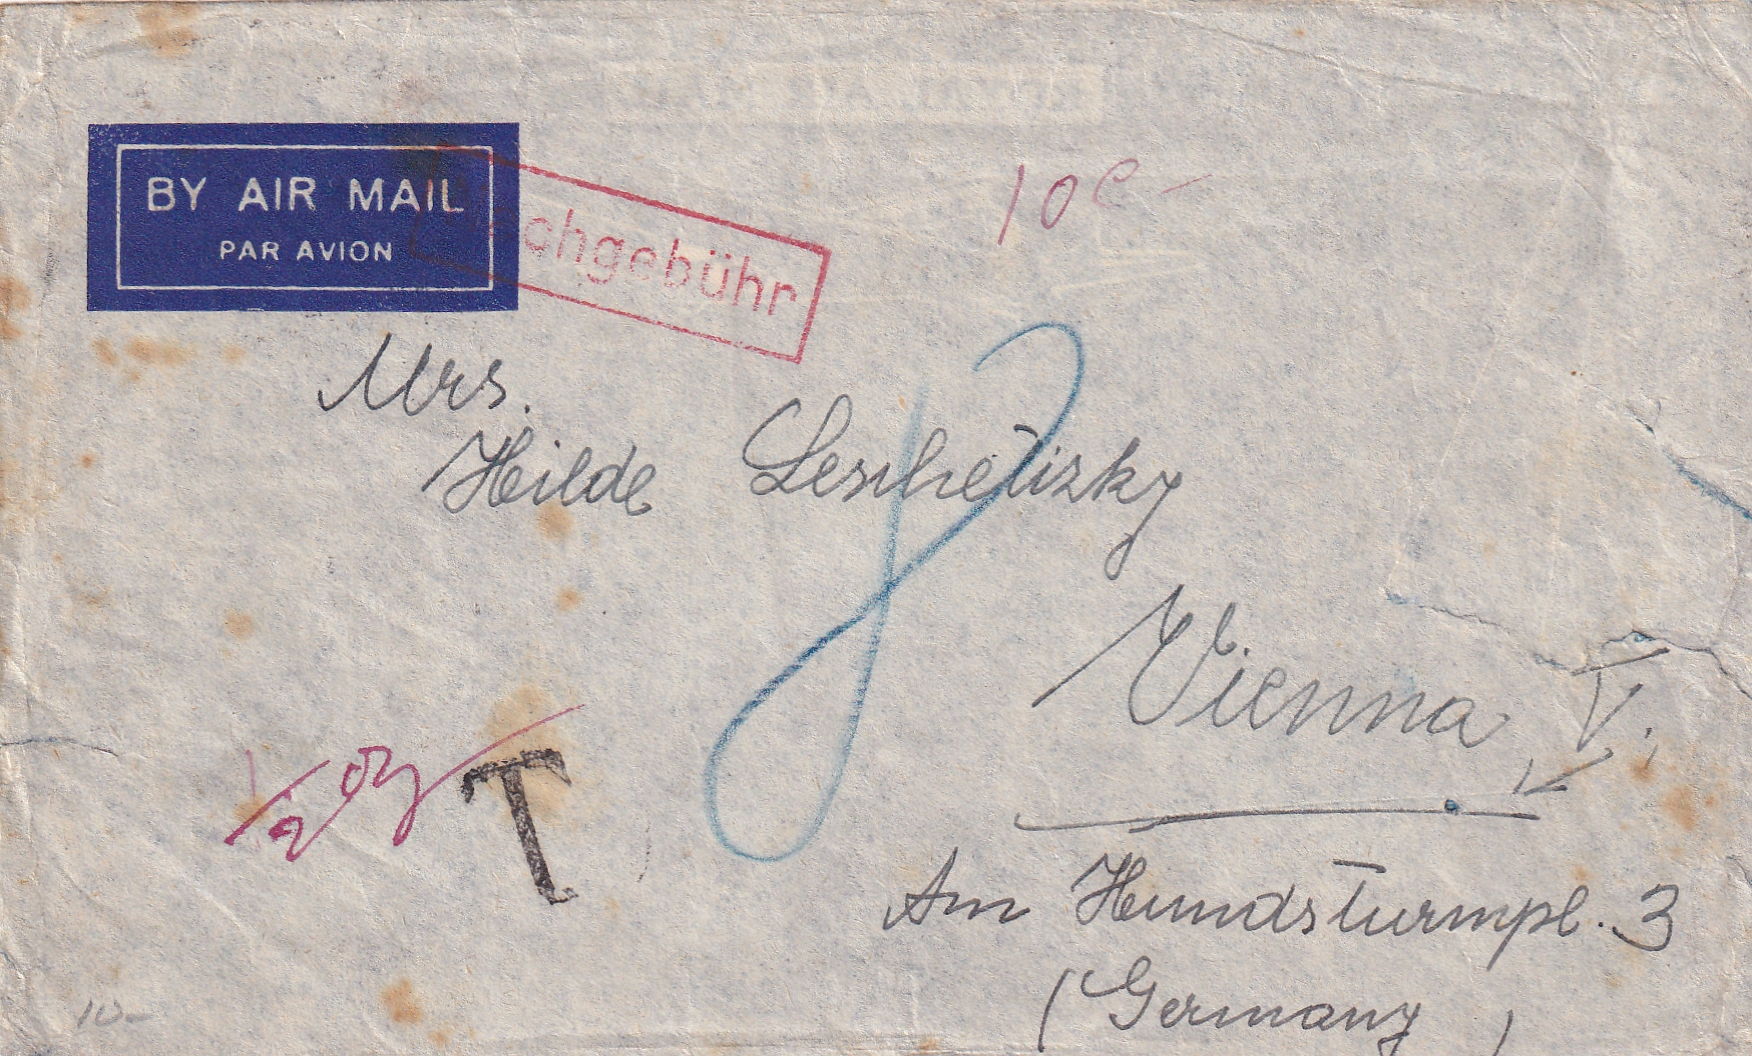 BY AIR MAIL
PAR AVION
chgebühr
10c-
Mrs.
Hilde Leschetizky
Vienna V.
½ oz
T
Am Hundsturmpl. 3
(Germany)
10-